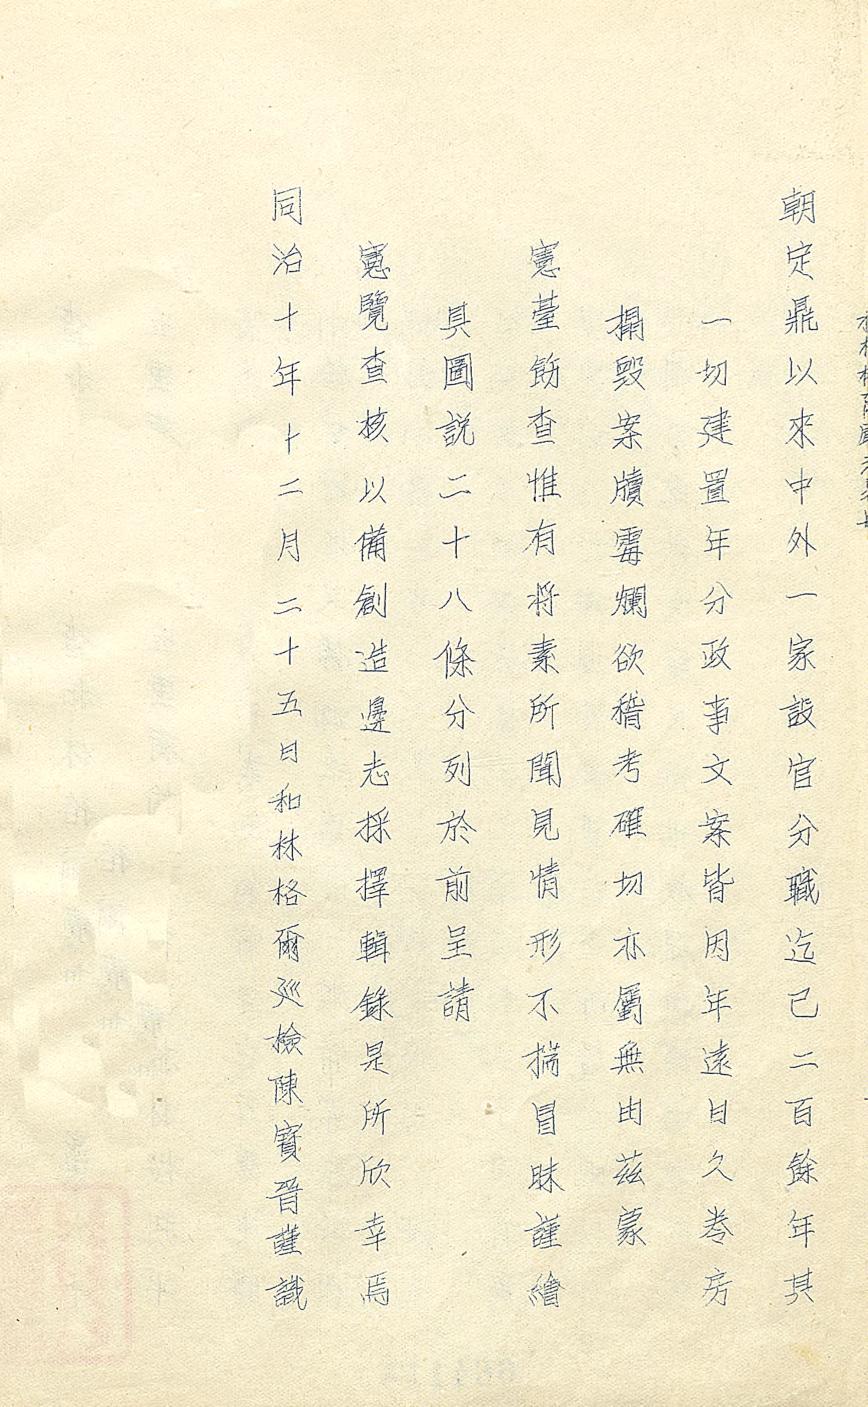 朝定鼎以來中外一家設官分職迄已二百餘年其
一切建置年分政事文案皆因年遠日久卷房
搨毀案牘霉爛欲稽考確切亦屬無由茲蒙
憲薹飭查惟有将素所聞見情形不揣冒昧謹繪
具圖説二十八條分列於前呈請
憲覽查核以備創造邊志採擇輯錄是所欣幸焉
同治十年十二月二十五日和林格爾巡檢陳寶晉謹識